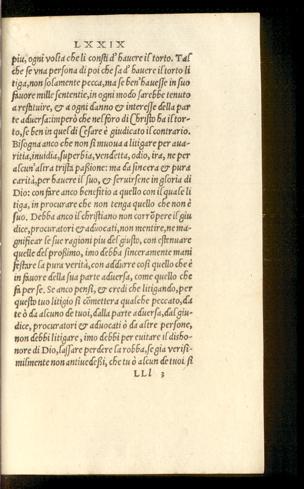 LXXIX
piu, ogni volta che li consti d'hauere il torto. Tal
che se vna persona di poi che sa d'hauere il torto li
tiga, non solamente pecca, ma se ben'hauesse in suo
fauore mille sententie, in ogni modo sarebbe tenuto
a restituire, & a ogni danno & interesse della par
te aduersa: imperò che nel foro di Christo ha il tor-
to, se ben in quel di Cesare è giudicato il contrario.
Bisogna anco che non si muoua a litigare per aua-
ritia, inuidia, superbia, vendetta, odio, ira, ne per
alcun'altra trista passione: ma da sincera & pura
carità, per hauere il suo, & seruirsene in gloria di
Dio: con fare anco benefitio a quello con il quale li
tiga, in procurare che non tenga quello che non è
suo. Debba anco il christiano non corrõpere il giu
dice, procuratori & aduocati, non mentire, ne ma-
gnificar le sue ragioni piu del giusto, con estenuare
quelle del prossimo, imo debba sinceramente mani
festare la pura verità, con addurre cosi quello che è
in fauore della sua parte aduersa, come quello che
fa per se. Se anco pensi, & credi che litigando, per
questo tuo litigio si cõmettera qualche peccato, da
te ò da alcuno de tuoi, dalla parte aduersa, dal giu-
dice, procuratori & aduocati ò da altre persone,
non debbi litigare, imo debbi per euitare il disho-
nore di Dio, lassare perdere la robba, se gia verisi-
milmente non antiuedessi, che tu ò alcun de tuoi si
LLl 3